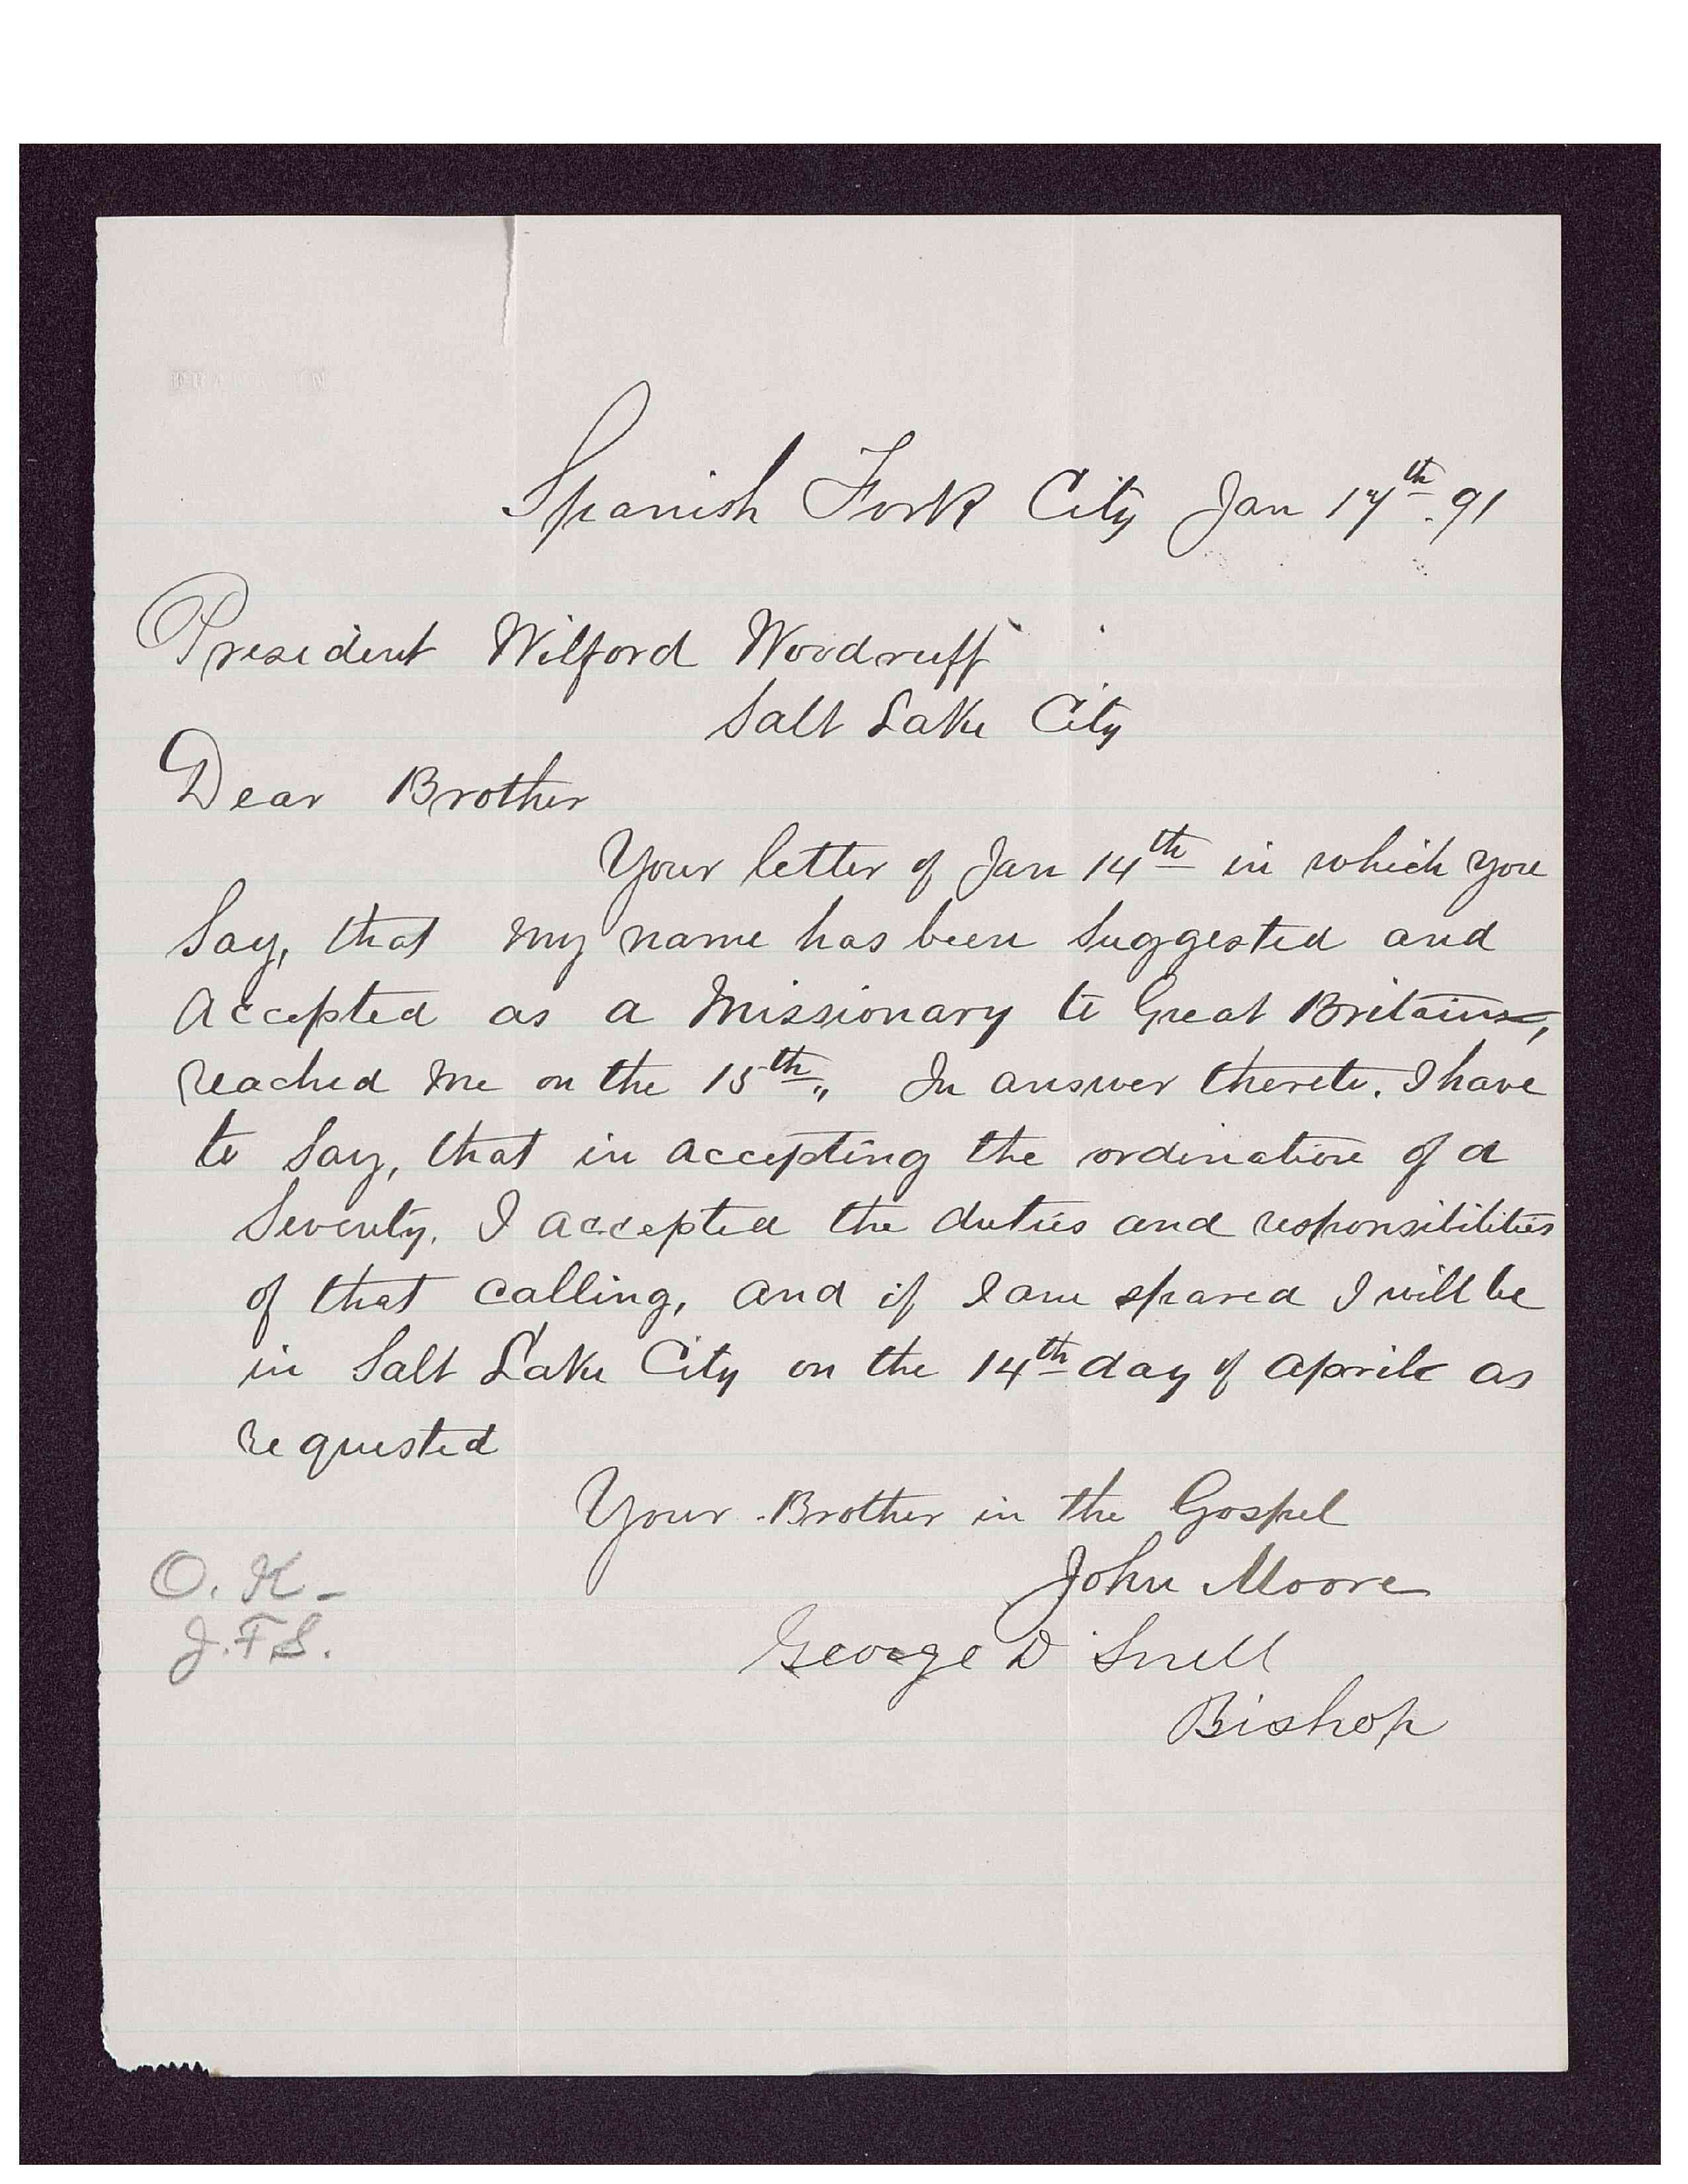 Spanish Fork City Jan 17th. 91
President Wilford Woodruff
Salt Lake City
Dear Brother
Your letter of Jan 14th in which you
Say, that my name has been Suggested and
Accepted as a Missionary to Great Britain,
Reached me on the 15th,, In answer thereto. I have
to Say, that in accepting the ordination of a
Seventy. I accepted the duties and responsibilities
of that calling, and if I am spared I will be
in Salt Lake City on the 14th day of April as
requested
Your Brother in the Gospel
John Moore
George D Snell
Bishop
O. K-
J. F S.